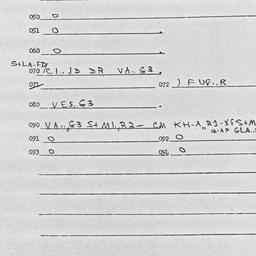 050 0
051 0
060 0
S+LA-FD/
070 /CI..JD DR VA..G3.
071 072 ) FUS..R
080 VES,G3
090 VA..,G3 S+MI,R2- CM KH-A,,R1-XFS+M
091 0 092 0
093 0 094 0